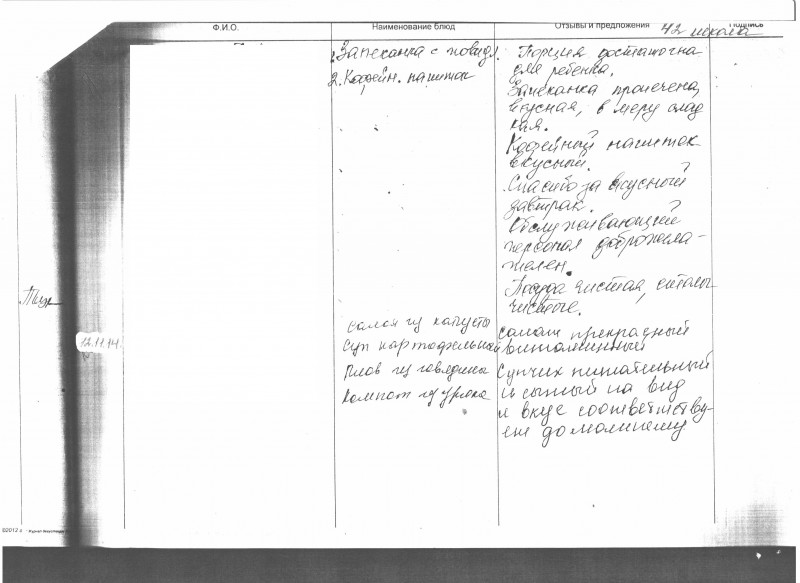 Ф.И.О. Наименование блюд Отзывы и предложения Подпись
42 школа
1. Запеканка с повидл.
2. Кофейн. напиток
Порция достаточна
для ребенка.
Запеканка пропечена,
вкусная, в меру слад
кая.
Кофейный напиток
вкусный.
Спасибо за вкусный
завтрак.
Обслуживающий
персонал доброжела-
телен.
Посуда чистая, столы
чистые.
12.11.14.
салат из капусты
Суп картофельный
Плов из говядины
Компот из урюка
салат прекрасный
витаминный
Супчик питательный
и сытный на вид
и вкус соответству-
ет домашнему
©2012 г.